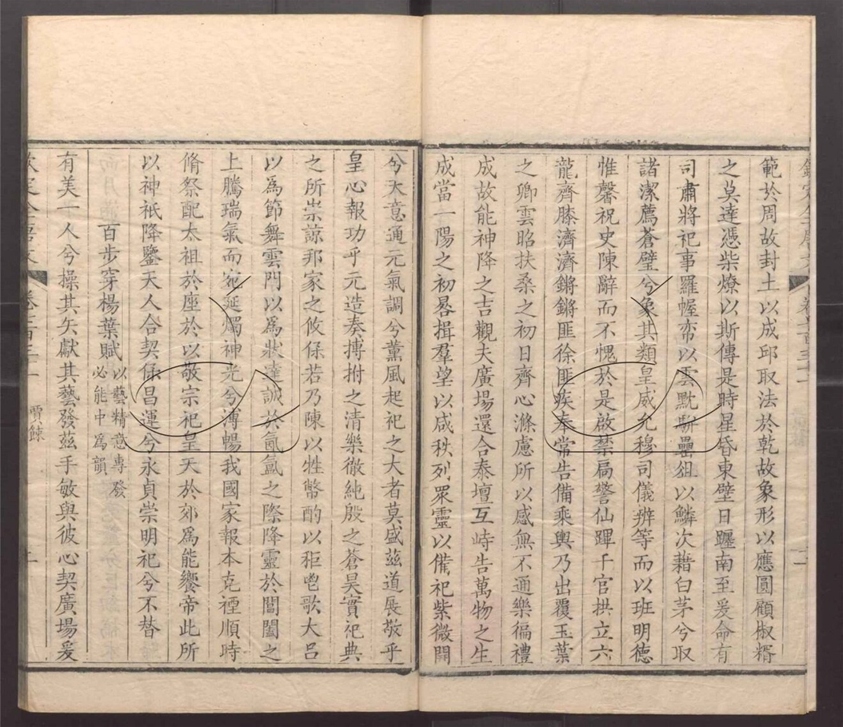 範於周故封土以成邱取法於乾故象形以應圓顧椒糈
之莫達憑柴燎以斯傳是時星昏東壁日躔南至爰命有
司肅將祀事羅幄帟以雲黕駢罍俎以鱗次藉白茅兮取
諸潔薦蒼璧兮象其類皇威允穆司儀辨等而以班明德
惟馨祝史陳辭而不愧於是啟禁扃警仙蹕千官拱立六
龍齊膝濟濟鏘鏘匪徐匪疾奉常告備乘輿乃出覆玉葉
之卿雲昭扶桑之初日齊心滌慮所以感無不通樂徧禮
成故能神降之吉觀夫廣場還合泰壇互峙告萬物之生
成當一陽之初晷揖羣望以咸秩列眾靈以備祀紫微開
兮天意通元氣調兮薰風起祀之大者莫盛茲道展敬乎
皇心報功乎元造奏搏拊之清樂徹純殷之蒼昊實祀典
之所崇諒邦家之攸保若乃陳以牲幣酌以秬鬯歌大呂
以為節舞雲門以為狀達誠於氤氳之際降靈於閶闔之
上騰瑞氣而宛延燭神光兮溥暢我國家報本克禋順時
脩祭配太祖於座於以敬宗祀昊天於郊為能饗帝此所
以神祇降鑒天人合契保昌運兮永貞崇明祀兮不替
百步穿楊葉賦以藝精意專發必能中為韻
有美一人兮操其矢獻其藝發茲手敏與彼心契廣場爰